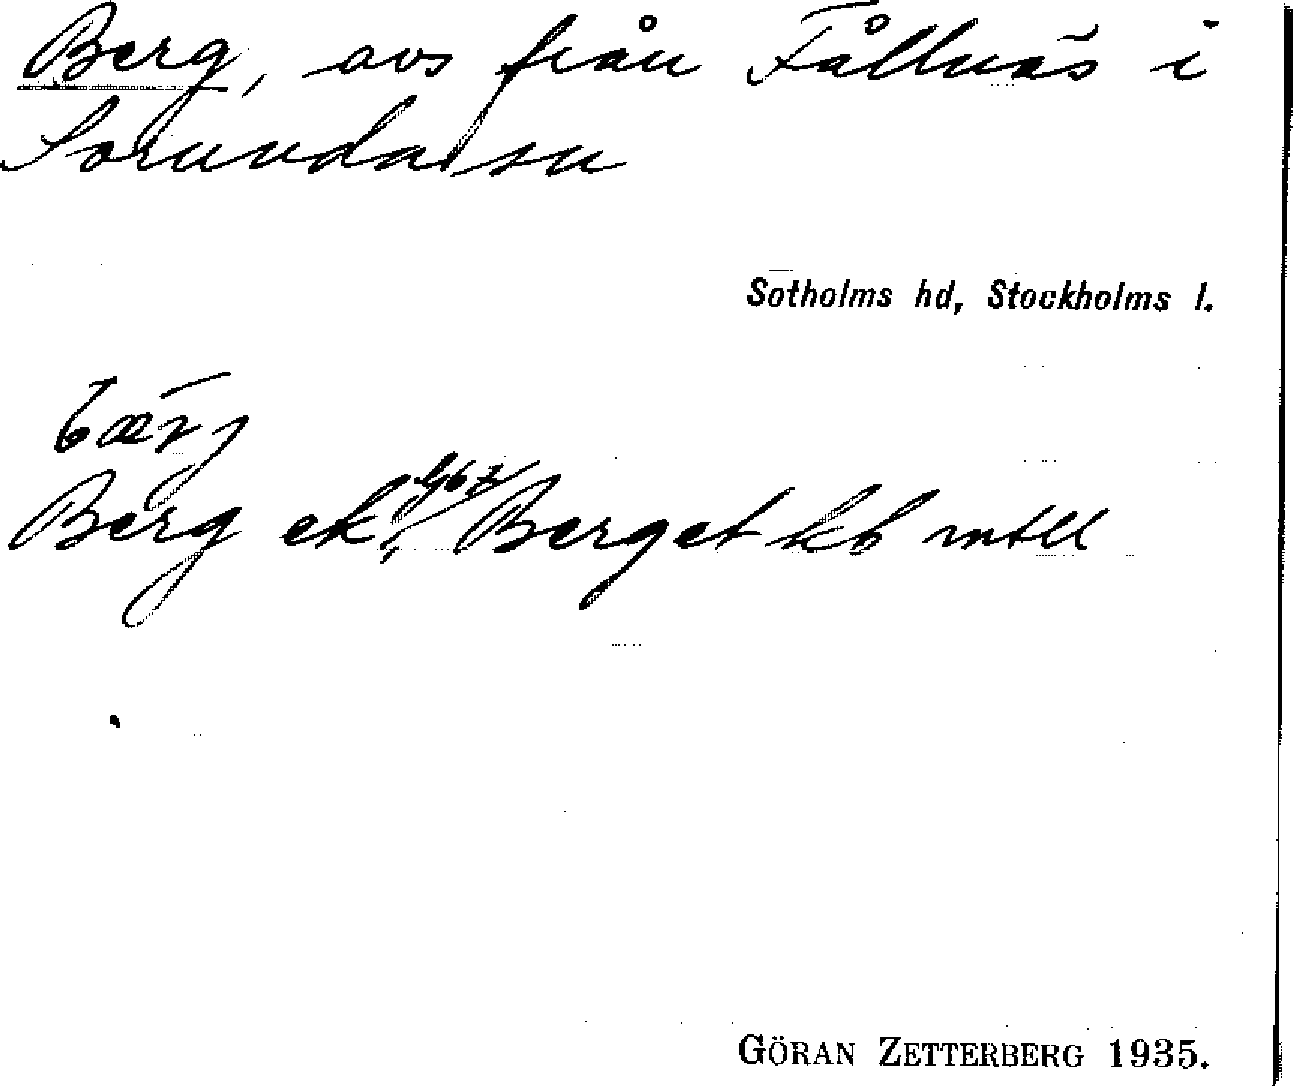 Berg, avs från Fållnäs i
Sorunda sn
Sotholms hd, Stockholms l.
bærj
Berg ek, Berget kb mtll
GÖRAN ZETTERBERG 1935.